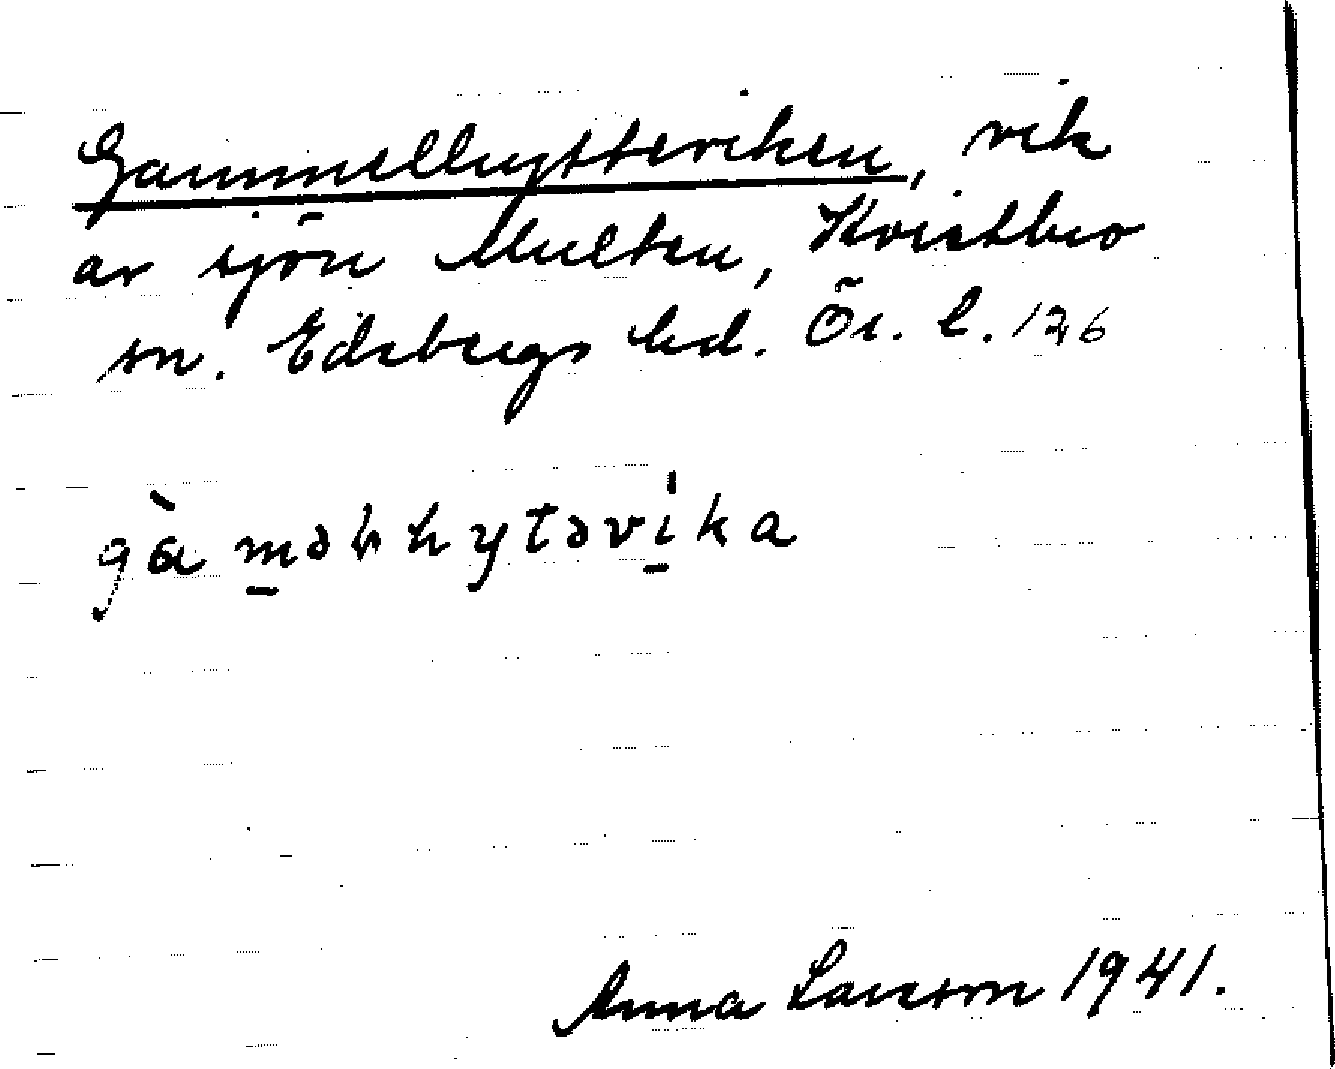 Gammelhytteviken, vik
av sjön Multen, Kvistbro
sn. Edsbergs hd. Ör. l. 126
gàm̠əlhytəvi̠ka
Anna Larsson 1941.